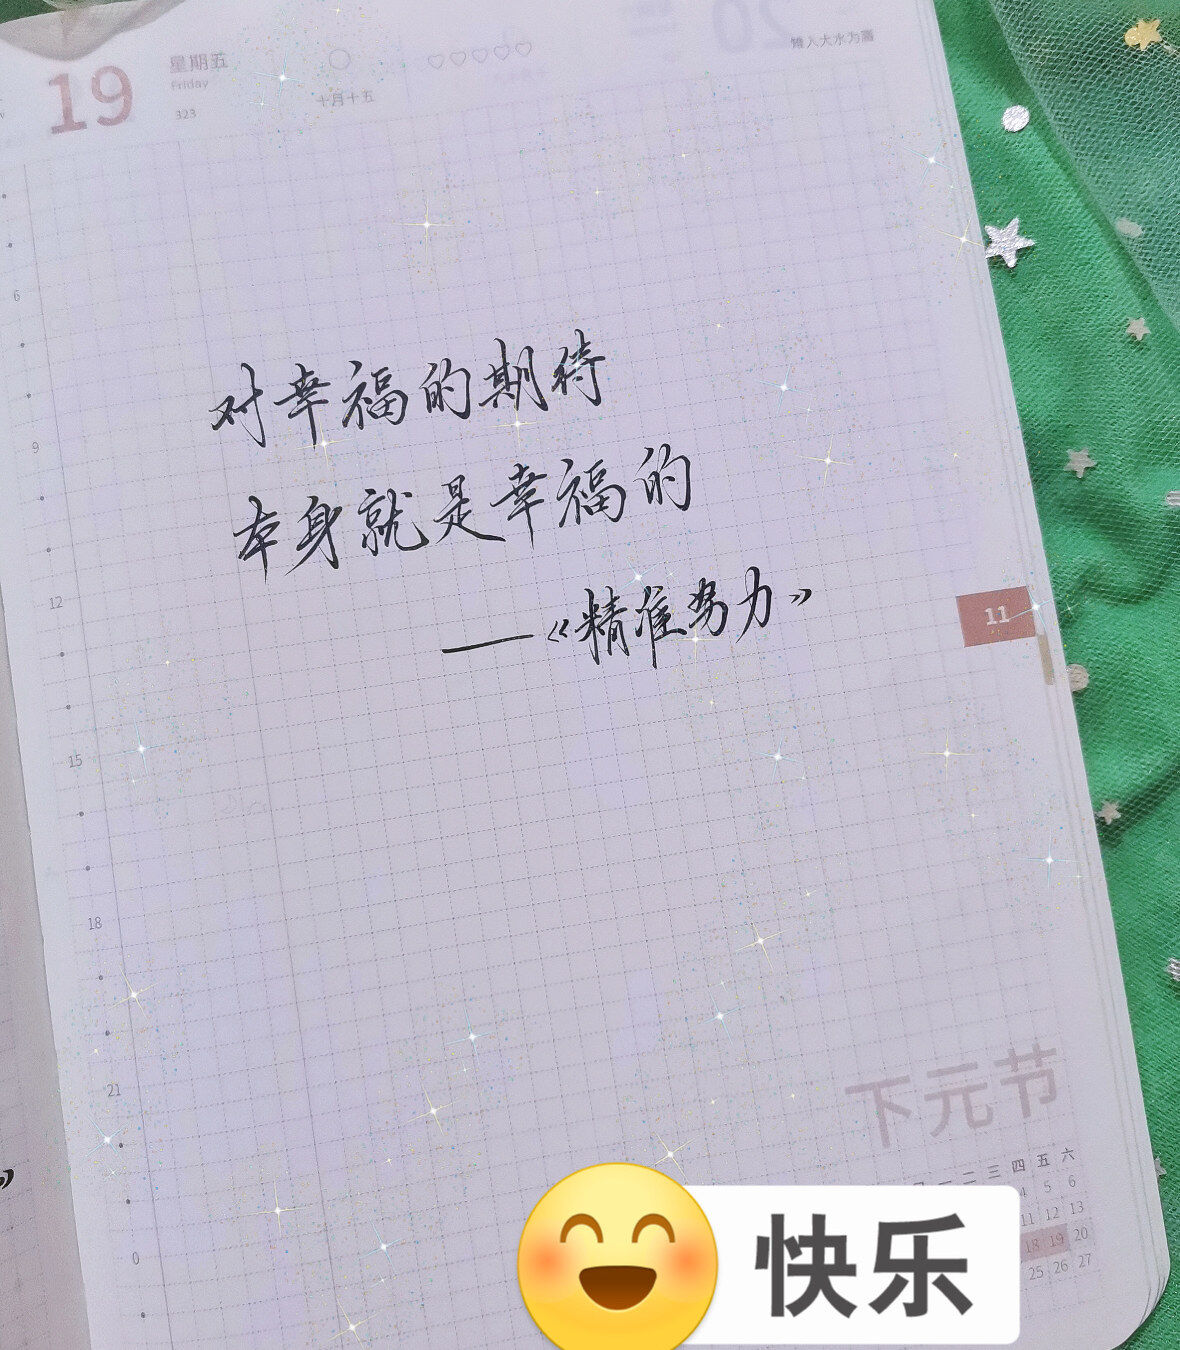 19
星期五
Friday
323
十月十五
20
懒人大水为震
6
对幸福的期待
9
本身就是幸福的
12
——《精准努力》
11
15
18
21
下元节
二 三 四 五 六
4 5 6
11 12 13
18 19 20
25 26 27
0
》
快乐